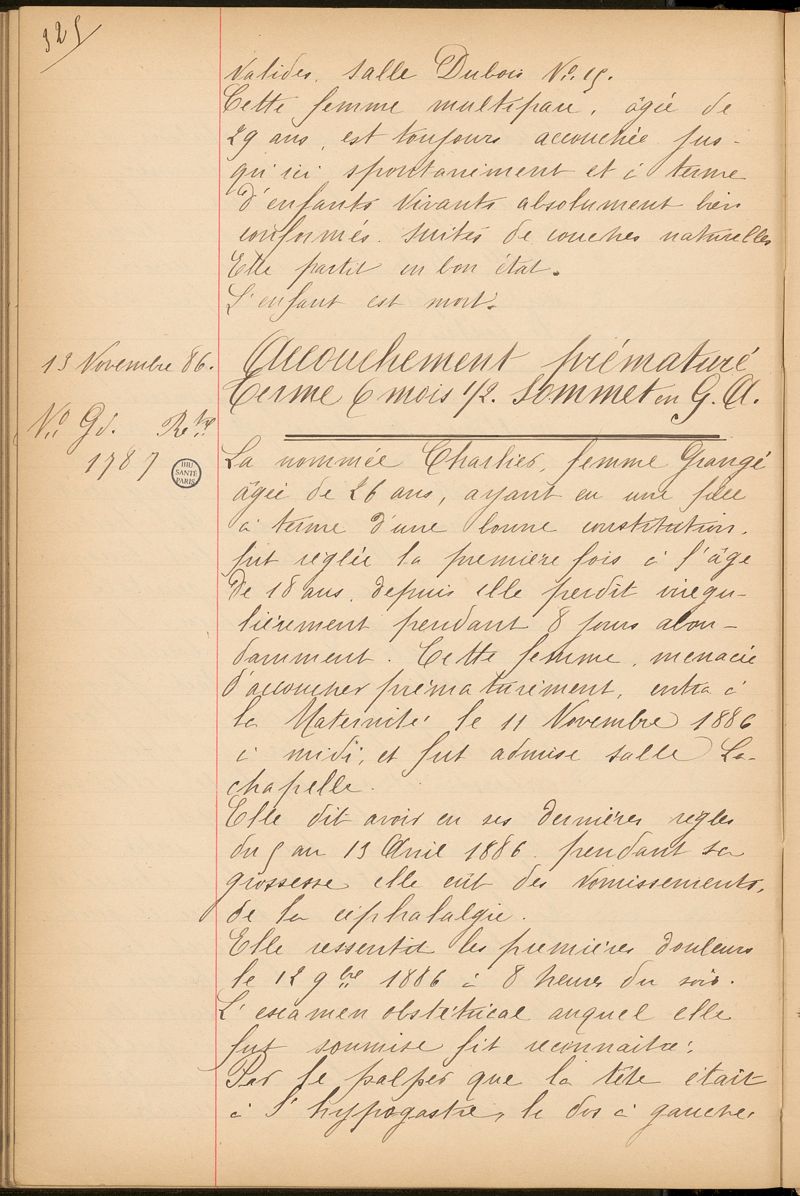 325
valides, salle Dubois No. 15.
Cette femme multipare, âgée de
29 ans, est toujours accouchée jus-
qu'ici spontanément et à terme
d'enfants vivants absolument bien
conformés. Suites de couches naturelles
Elle partit en bon état.
L'enfant est mort.
13 Novembre 86.
Accouchement prématuré
Terme 6 mois 1/2. Sommet en G. A.
No Gd. Rtre
1787
BIU
SANTÉ
PARIS
La nommée Charlier, femme Grangé
âgée de 26 ans, ayant eu une fille
à terme d'une bonne constitution.
fut réglée la première fois à l'âge
de 18 ans, depuis elle perdit irrégu-
lièrement pendant 8 jours abon-
damment. Cette femme, menacée
d'accoucher prématurément, entra à
la Maternité le 11 Novembre 1886
à midi, et fut admise salle La-
chapelle.
Elle dit avoir eu ses dernières règles
du 5 au 13 Avril 1886. pendant sa
grossesse elle eût des vomissements,
de la céphalalgie.
Elle ressentit les premières douleurs
le 12 9bre 1886 à 8 heures du soir.
L'examen obstétrical auquel elle
fut soumise fit reconnaître:
Par le palper que la tête était
à l'hypogastre, le dos à gauche,